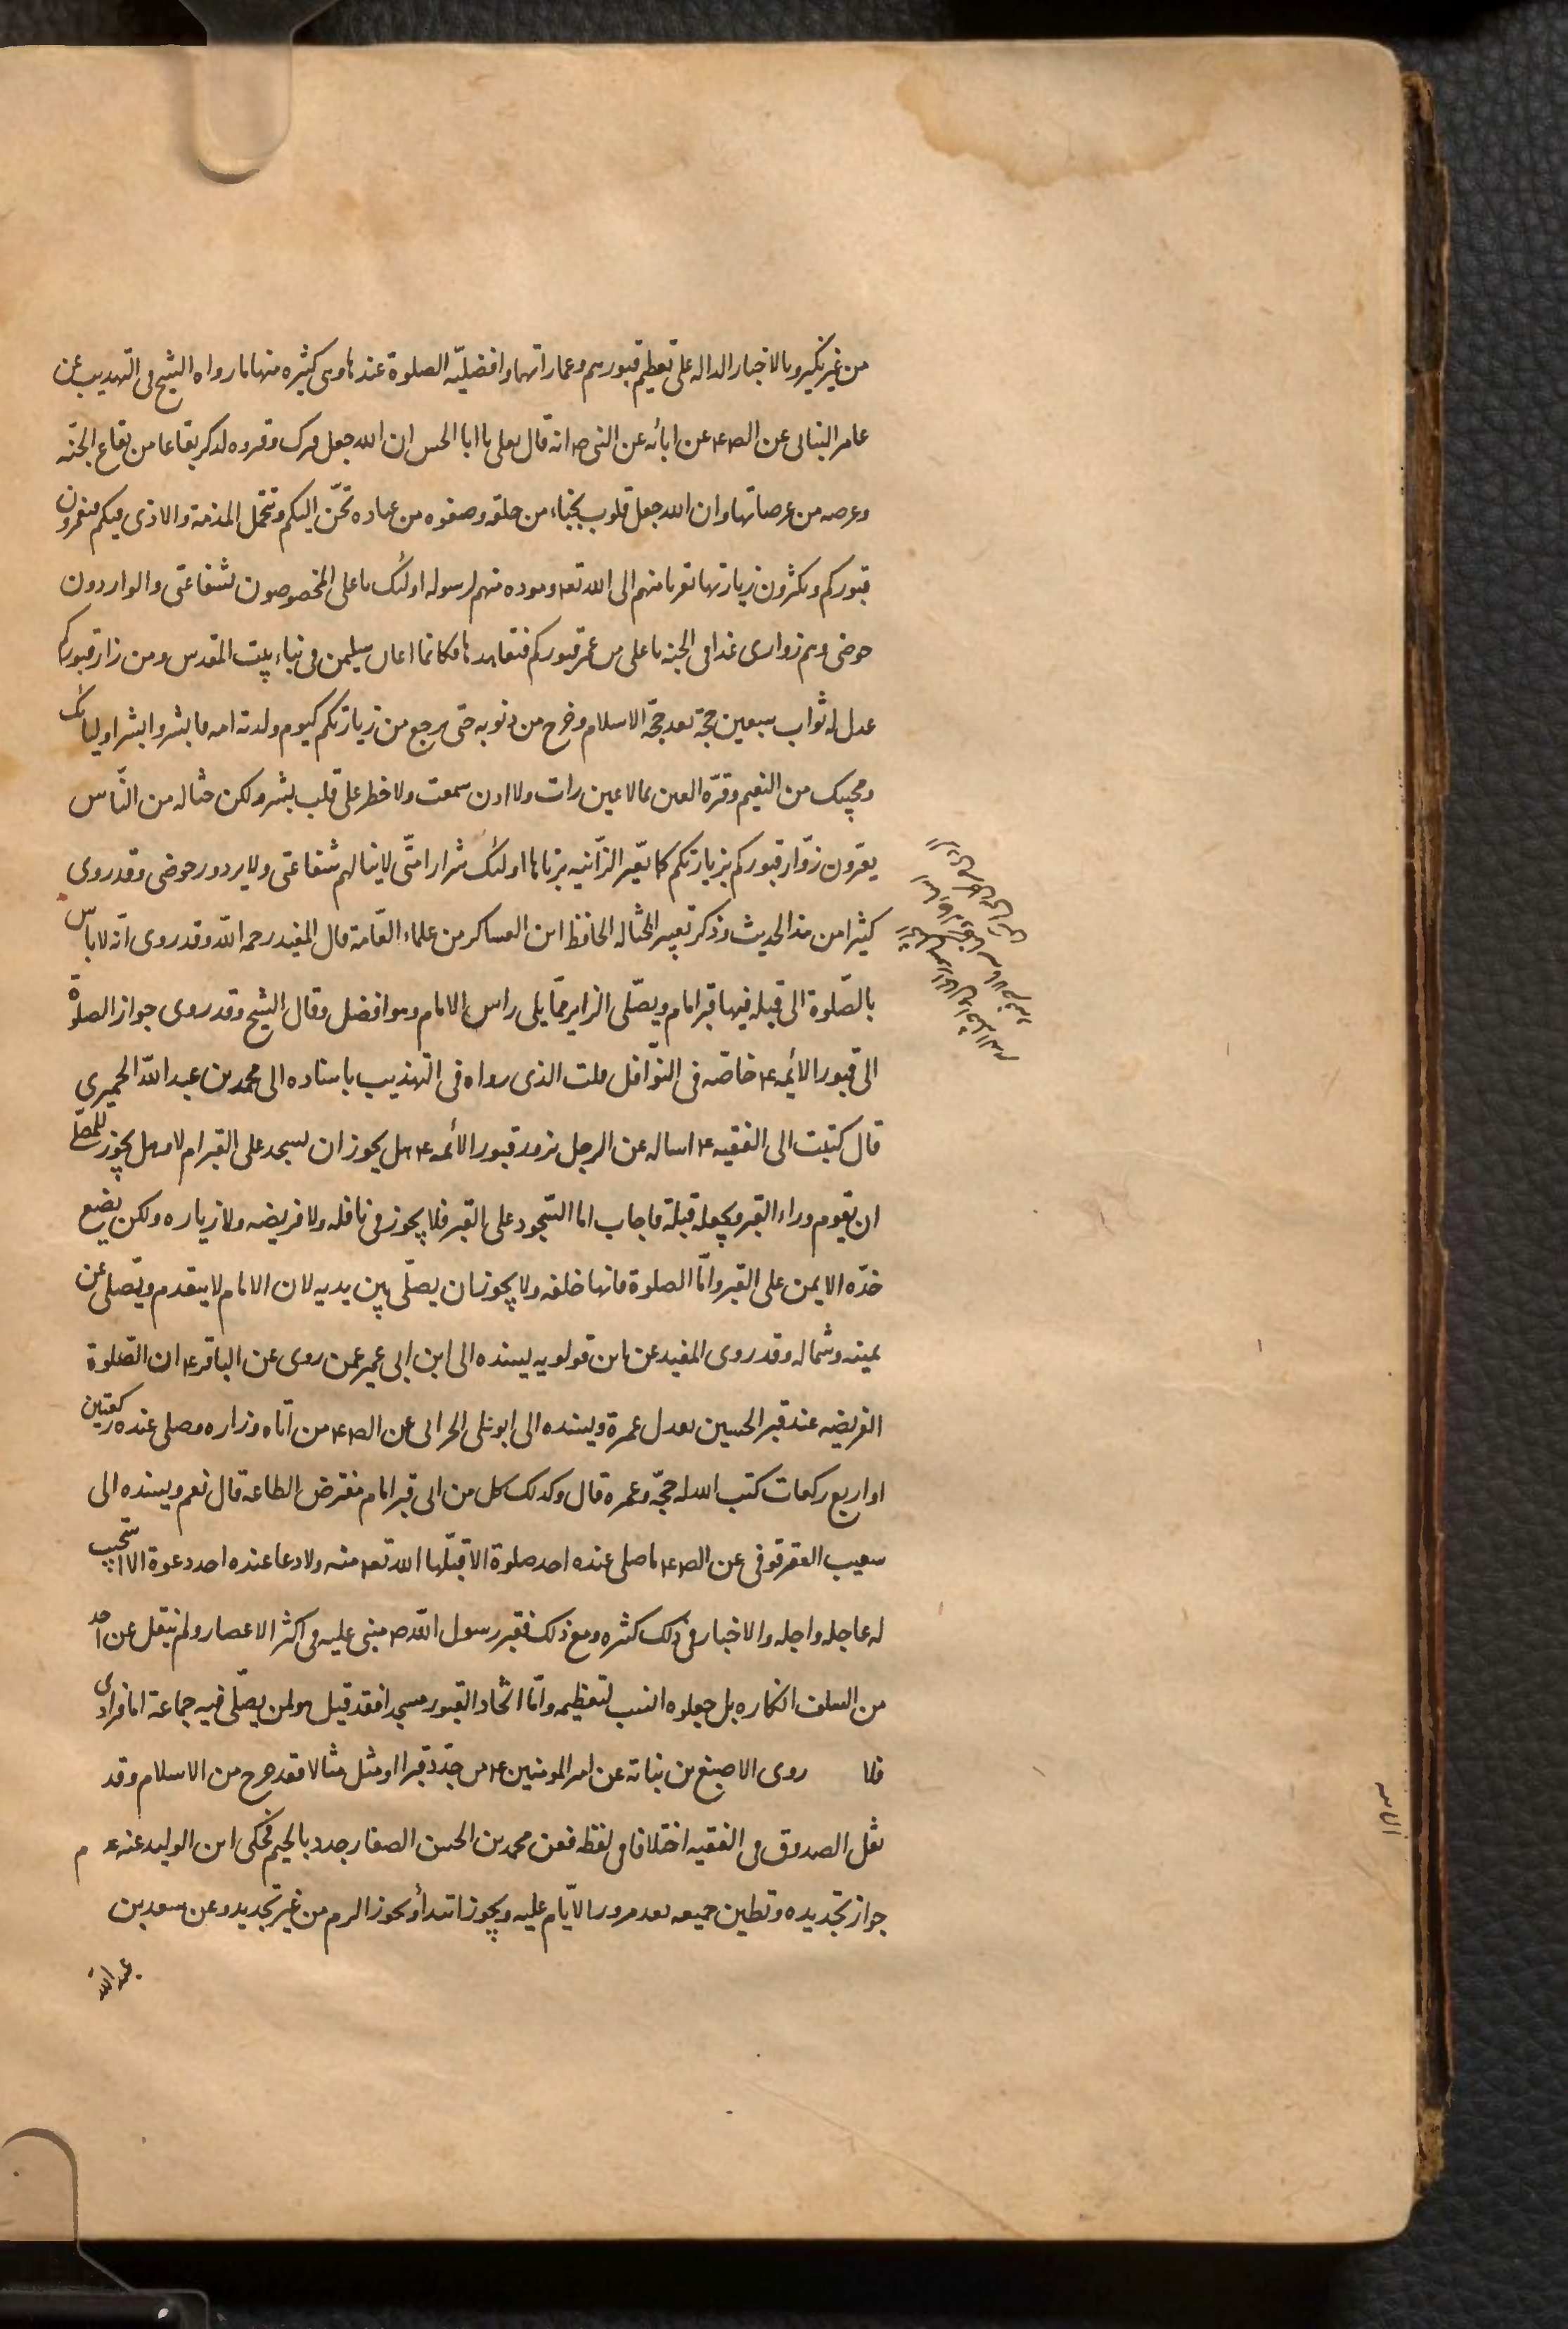 من غير نكير وبالاخبار الداله على تعظيم قبورهم وعماراتها وافضليّه الصلوة عندها وهى كثيره منها ما رواه الشيخ فى التهذيب عن
عامر البنانى عن الص ع عن ابائه عن النبى ص انه قال لعلى يا ابا الحسن ان الله جعل قبرك وقبر ولدك بقاعا من بقاع الجنّه
وعرصه من عرصاتها وان الله جعل قلوب نجباء من خلقه وصفوه من عباده تحنّ اليكم وتحمّل المذمة والاذى فيكم فيعمرون
قبوركم ويكثرون زيارتها تقربا منهم الى الله تع وموده منهم لرسوله اولئك يا على المخصوصون بشفاعتى والواردون
حوضى وهم زوارى غدا فى الجنه يا على من عمر قبوركم فتعاهدها فكانما اعان سليمن فى بناء بيت المقدس ومن زار قبوركم
عدل له ثواب سبعين حجّة بعد حجّة الاسلام وخرج من ذنوبه حتى يرجع من زيارتكم كيوم ولدته امه فابشر وابشر اوليائك
ومحبيك من النعيم وقرّه العين بما لا عين رات ولا اذن سمعت ولا خطر على قلب بشر ولكن حثاله من النّاس
يعيّرون زوّار قبوركم بزيارتكم كما تعيّر الزّانيه بزناها اولئك شرار امتّى لا ينالهم شفاعتى ولا يردو ر حوضى وقد روى
كثيرا من هذ الحديث وذكر تعيير الحثاله الحافظ ابن العساكر من علماء العّامة قال المفيد رحمه اللّه وقد روى انّه لا باسّ
بالصّلوة الى قبله فيها قبر امام ويصّلى الزاير ممّا يلى راس الامام وهو افضل وقال الشيخ وقد روى جواز الصلوة
الى قبور الائمه ع خاصّه فى النّوافل قلت الذى رواه فى التهذيب باسناده الى محمد بن عبد اللّه الحميرى
قال كتبت الى الفقيه ع اساله عن الرجل يزور قبور الأئمه ع هل يجوز ان يسجد على القبر ام لا وهل يجوز للمصلّى
ان يقوم وراء القبر ويجعله قبلة فاجاب اما السّجود على القبر فلا يجوز فى نافله ولا فريضه ولا زياره ولكن يضع
خدّه الايمن على القبر وامّا الصلوة فانها خلفه ولا يجوز ان يصلّى بين يديه لان الامام لا يتقدم ويصّلى عن
يمينه وشماله وقد روى المفيد عن ابن قولويه بسنده الى ابن ابى عمير عمن روى عن الباقر ع ان الصّلوة
الفريضه عند قبر الحسين يعدل عمرة وبسنده الى ابو على الحرانى عن الص ع من اتاه وزاره وصلى عنده ركعتين
او اربع ركعات كتب الله له حجّة وعمره قال وكذلك كل من اتى قبر امام مفترض الطاعه قال نعم وبسنده الى
شعيب العقرقوفى عن الص ع ما صلى عنده احد صلوة الا قبّلها اللّه تع منه ولا دعا عنده احد دعوة الا استجيب
له عاجله واجله والاخبار فى ذلك كثيره ومع ذلك فقبر رسول اللّه ص مبنى عليه فى اكثر الاعصار ولم ينقل عن احد
من السلف انكاره بل جعلوه انسب لتعظيمه وامّا اتّخاذ القبور مسجدا فقد قيل هو لمن يصّلى فيه جماعة اما فرادى
فلا روى الاصبغ بن نباته عن امير المومنين ع من جدّد قبرا او مثل مثالا فقد خرج من الاسلام وقد
نقل الصدوق فى الفقيه اختلافا فى لفظه فعن محمد بن الحسن الصفار جدد بالجيم فحكى ابن الوليد عنه عدم
جواز تجديده وتطيين جميعه بعد مرور الايّام عليه ويجوز ابتدأ ويجوز الرم من غير تجديد وعن سعد بن
عبد الله